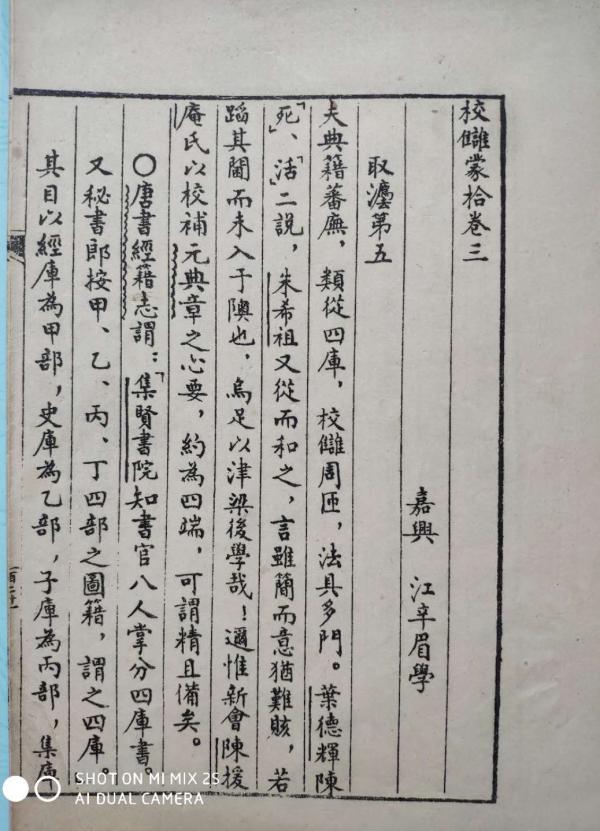 校讎蒙拾卷三
嘉興 江辛眉學
取灋第五
夫典籍蕃廡，類從四庫，校讎周匝，法具多門。葉德輝陳
「死」、「活」二説，朱希祖又從而和之，言雖簡而意猶難賅，若
蹈其閫而未入于隩也，烏足以津梁後學哉！邇惟新會陳援
庵氏以校補元典章之心要，約為四端，可謂精且備矣。
○唐書經籍志謂：「集賢書院知書官八人掌分四庫書。
又秘書郎按甲、乙、丙、丁四部之圖籍，謂之四庫。
其目以經庫為甲部，史庫為乙部，子庫為丙部，集庫
SHOT ON MI MIX 2S
AI DUAL CAMERA